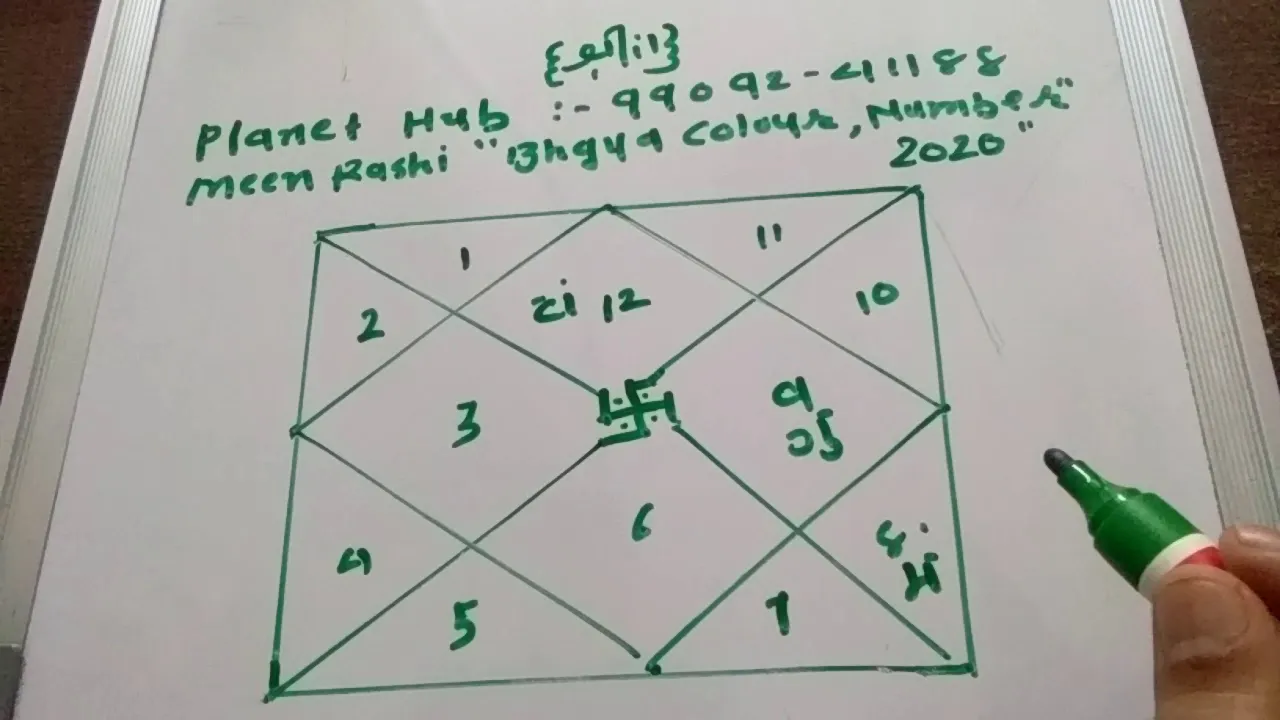 Planet Hub :- 99092-41188
Meen Rashi "Bhgya Colour, Number"
2020"
1
11
2
ચં 12
10
3
9
ગુ
6
4
8
મં
5
7